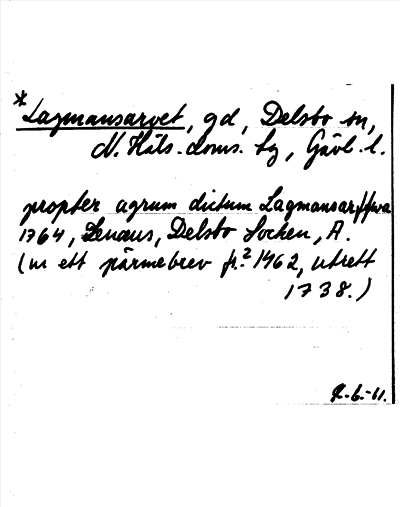 * Lagmansarvet, gd, Delsbo sn,
N. Häls. doms. tg, Gävl. l.
propter agrum dictum Lagmansarffwa
1764, Lenæus, Delsbo Socken, A.
(ur ett pärmebrev fr. 1462, utrett
1738.)